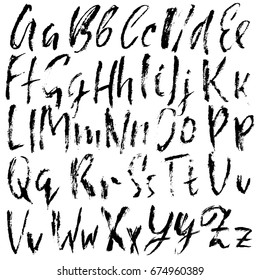 Aa Bb Cc Dd Ee
Ff Gg Hh Ii Jj Kk
Ll Mm Nn Oo Pp
Qq Rr Ss Tt Uu
Vv Ww Xx Yy Zz
shutterstock.com · 674960389